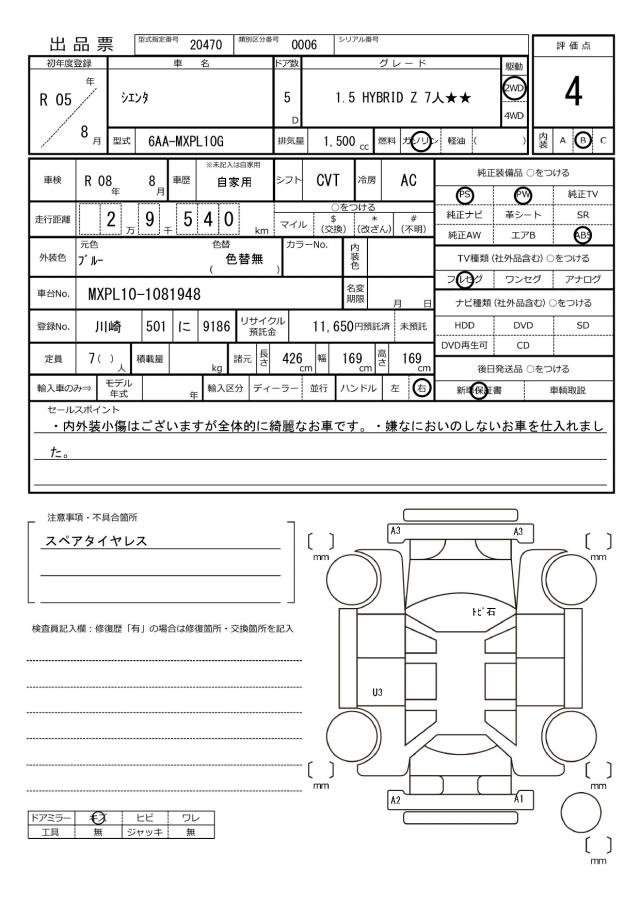 出品票 型式指定番号 20470 類別区分番号 0006 シリアル番号
初年度登録 車名 ドア数 グレード 駆動 評価点
R 05 年 8 月 シエンタ 5 D 1.5 HYBRID Z 7人★★ 2WD 4WD 4
型式 6AA-MXPL10G 排気量 1,500 cc 燃料 ガソリン 軽油 ( ) 内装 A B C
車検 R 08 年 8 月 車歴 ※未記入は自家用 自家用 シフト CVT 冷房 AC
走行距離 2 9 5 4 0 万 千 km ○をつける マイル $(交換) *(改ざん) #(不明)
外装色 元色 ブルー 色替 ( 色替無 ) カラーNo. 内装色
車台No. MXPL10-1081948 名変期限 月 日
登録No. 川崎 501 に 9186 リサイクル預託金 11,650円預託済 未預託
定員 7( ) 人 積載量 kg 諸元 長さ 426 cm 幅 169 cm 高さ 169 cm
輸入車のみ⇒ モデル年式 年 輸入区分 ディーラー 並行 ハンドル 左 右
純正装備品 ○をつける
PS PW 純正TV
純正ナビ 革シート SR
純正AW エアB ABS
TV種類(社外品含む)○をつける
フルセグ ワンセグ アナログ
ナビ種類(社外品含む)○をつける
HDD DVD SD
DVD再生可 CD
後日発送品 ○をつける
新車保証書 車輌取説
セールスポイント
・内外装小傷はございますが全体的に綺麗なお車です。・嫌なにおいのしないお車を仕入れまし
た。
注意事項・不具合箇所
スペアタイヤレス
検査員記入欄:修復歴「有」の場合は修復箇所・交換箇所を記入
A3 A3
mm mm
トビ石
U3
mm mm
A2 A1
mm
ドアミラー キズ ヒビ ワレ
工具 無 ジャッキ 無